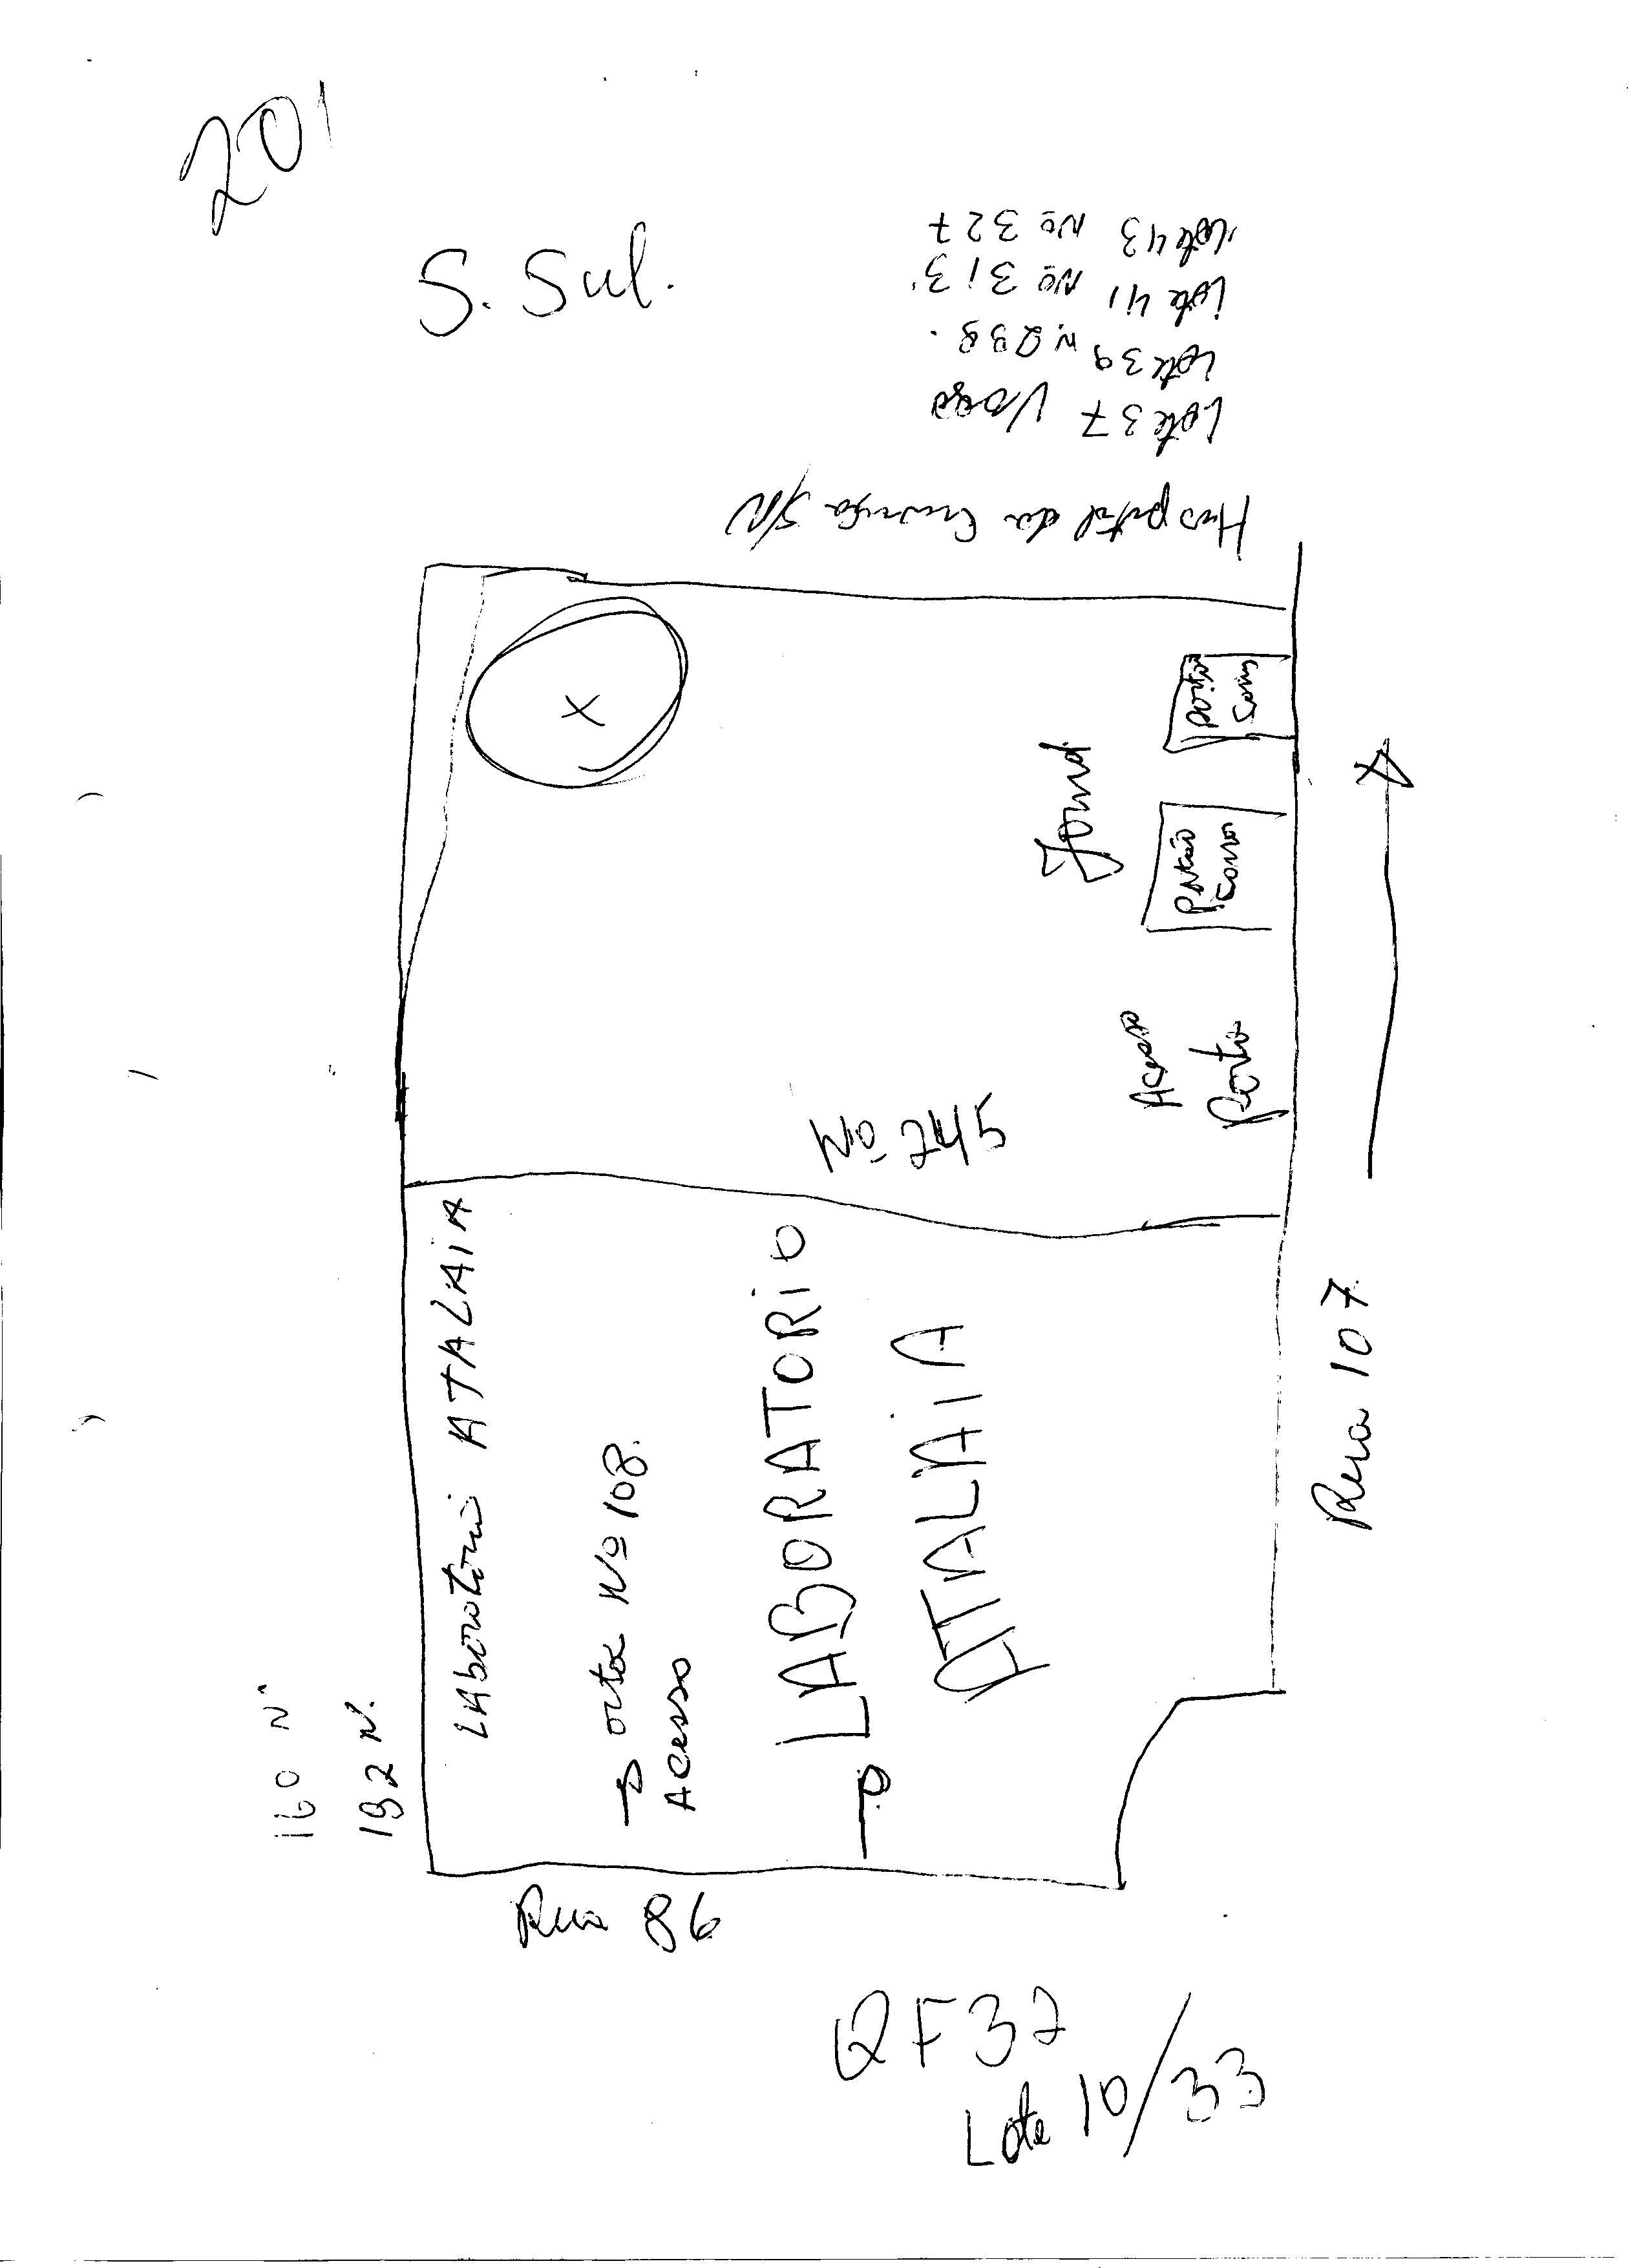 201
S. Sul.
Lote 43 Nº 327
Lote 41 Nº 313
Lote 39 N.
Lote 37 Vago
Hospital da S/N
Portão
Portão
Carro
Acesso
Porta
Nº 245
LAboratório ATALAiA
Porta Nº 108.
Acesso
LABORATORiO
ATALAiA
160 Nº
192 N.
Rua 107
Rua 86
QF 32
Lote 10/33